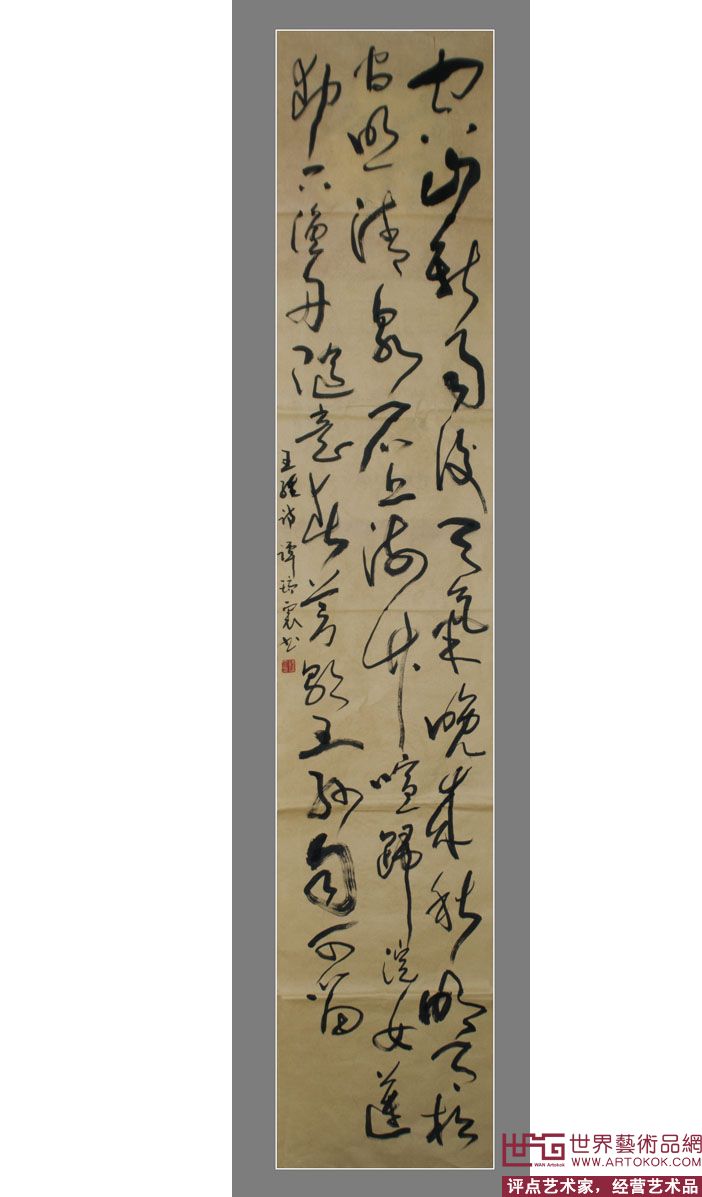 空山新雨後天氣晚來秋明月松
間照清泉石上流竹喧歸浣女蓮
動下漁舟隨意春芳歇王孫自可留
王維詩 譚震书
世界藝術品網
WAN Artokok WWW.ARTOKOK.COM
评点艺术家，经营艺术品